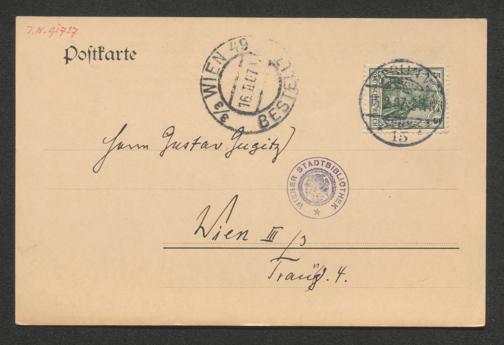 J.N. 91727
Postkarte
3/3 WIEN 49
16.II.07
BESTELLT
Herrn Gustav Gugitz
WIENER STADTBIBLIOTHEK
Wien III/3
15